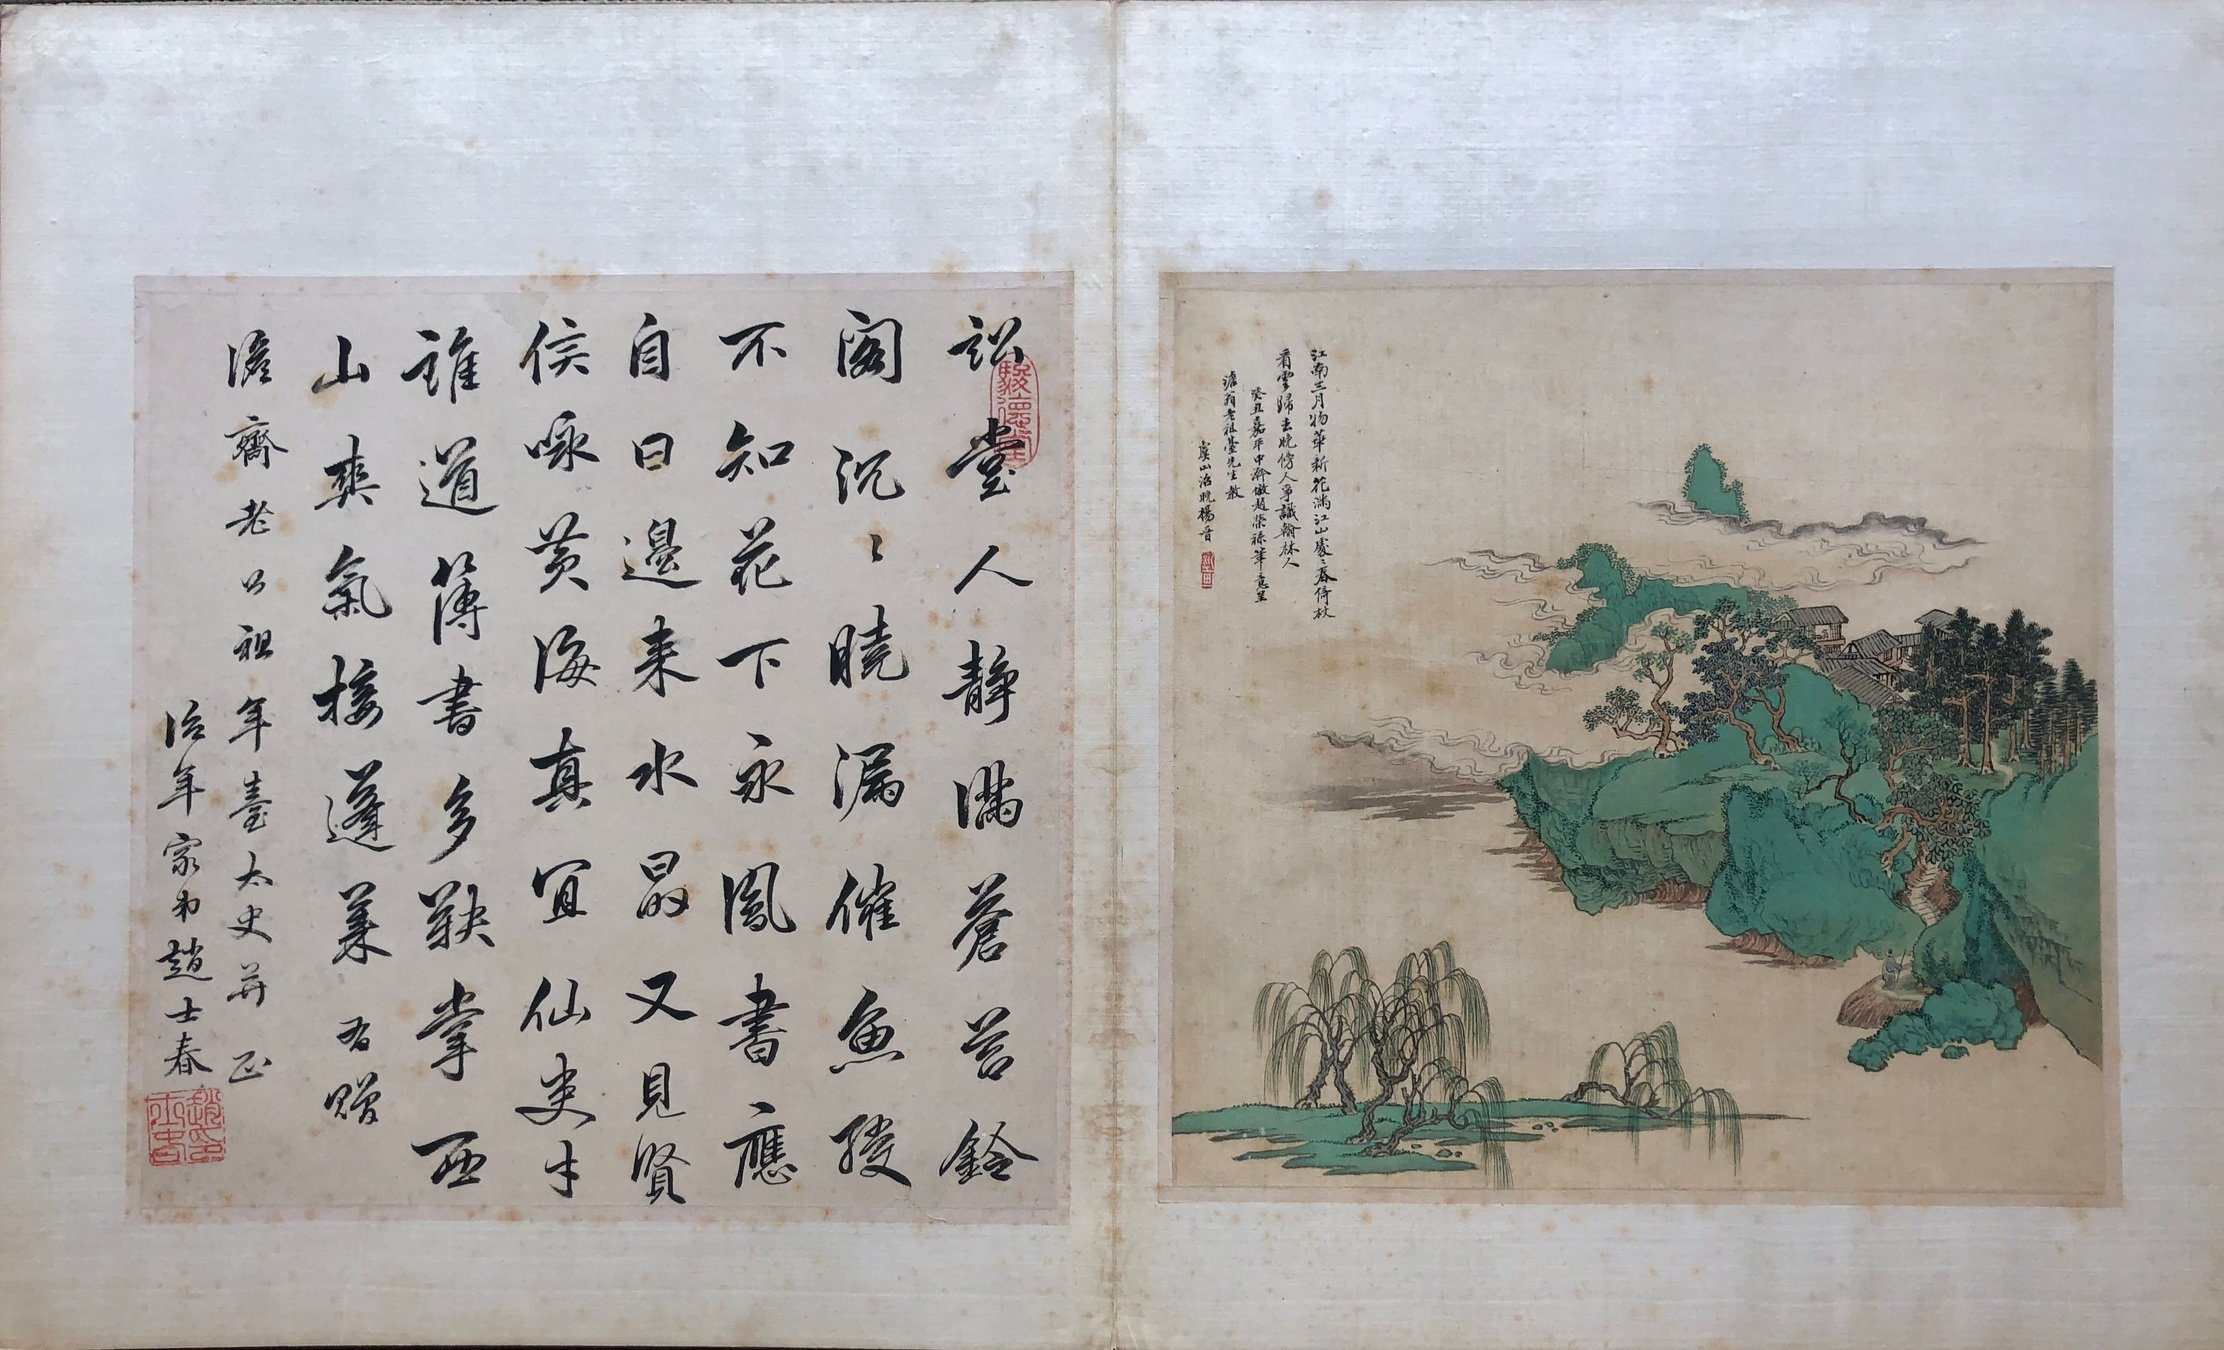 江南三月物華新花滿江山處〻春倚杖
看雲歸去晚傍人爭識翰林人
癸丑嘉平中澣倣趙榮祿筆意呈
澹翁老祖臺先生教
虞山治晚楊晉
訟堂人靜滿蒼苔鈴
閣沉〻曉漏催魚綬
不知花下永鳳書應
自日邊來水晶又見賢
侯咏黃海真宜仙吏才
誰道簿書多鞅掌西
山爽氣接蓬萊 右贈
澹齋老公祖年臺太史并正
治年家弟趙士春
趙印士春